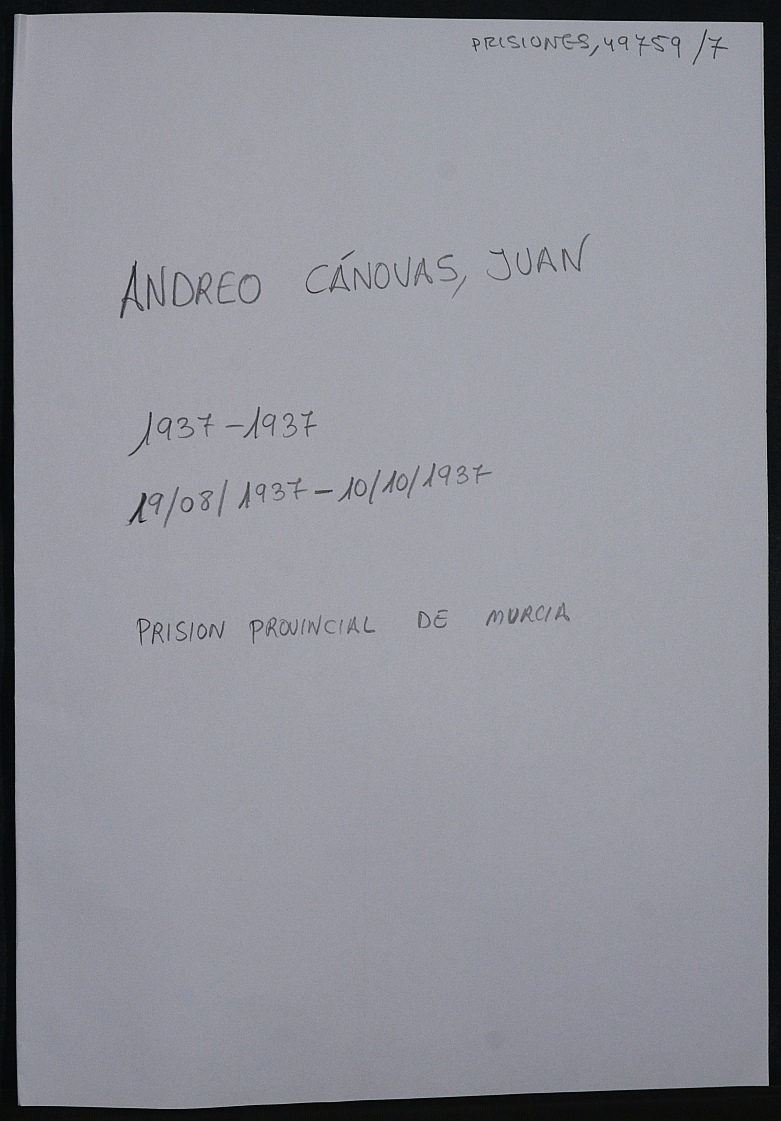 PRISIONES, 49759 /7
ANDREO CÁNOVAS, JUAN
1937-1937
19/08/1937-10/10/1937
PRISION PROVINCIAL DE MURCIA